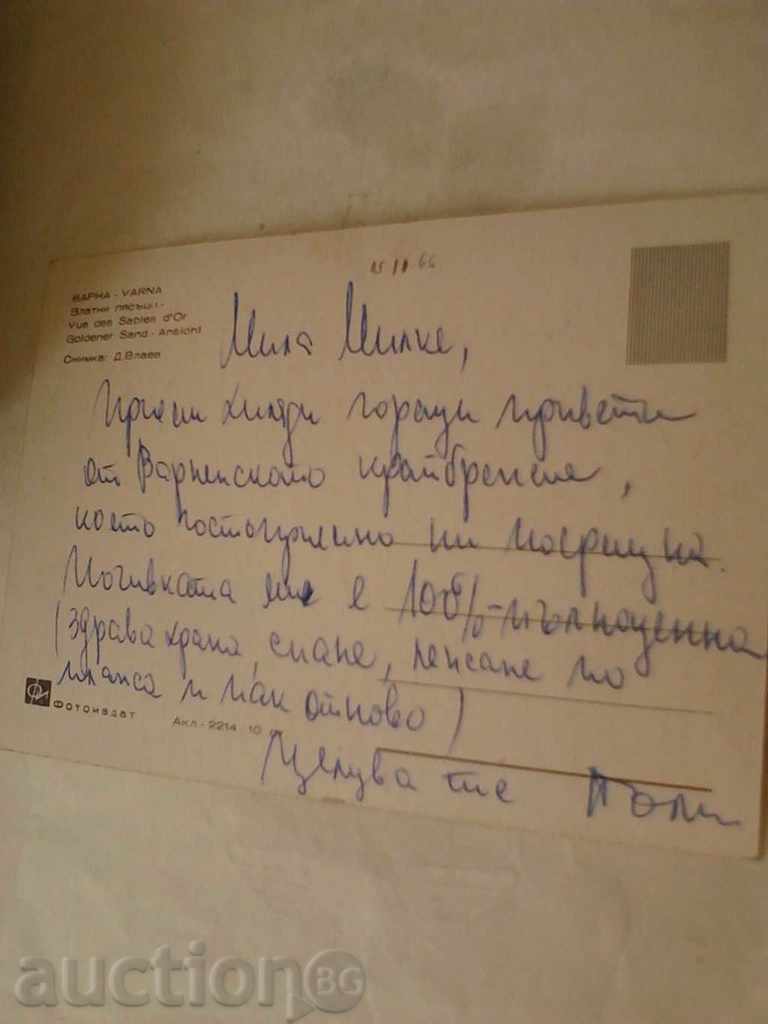 15 II 66
ВАРНА - VARNA
Златни пясъци -
Vue des Sables d'Or
Goldener Sand - Ansicht
Снимка: Д. Влаев
Мила Милке,
Приеми хиляди горещи привети
от Варненското крайбрежие,
което гостоприемно ни посрещна.
Почивката ми е 100%-пълноценна
(здрава храна, спане, лежане по
плажа и пак отново)
Целува те
Фотоиздат
Акл - 2214 10
auctionBG